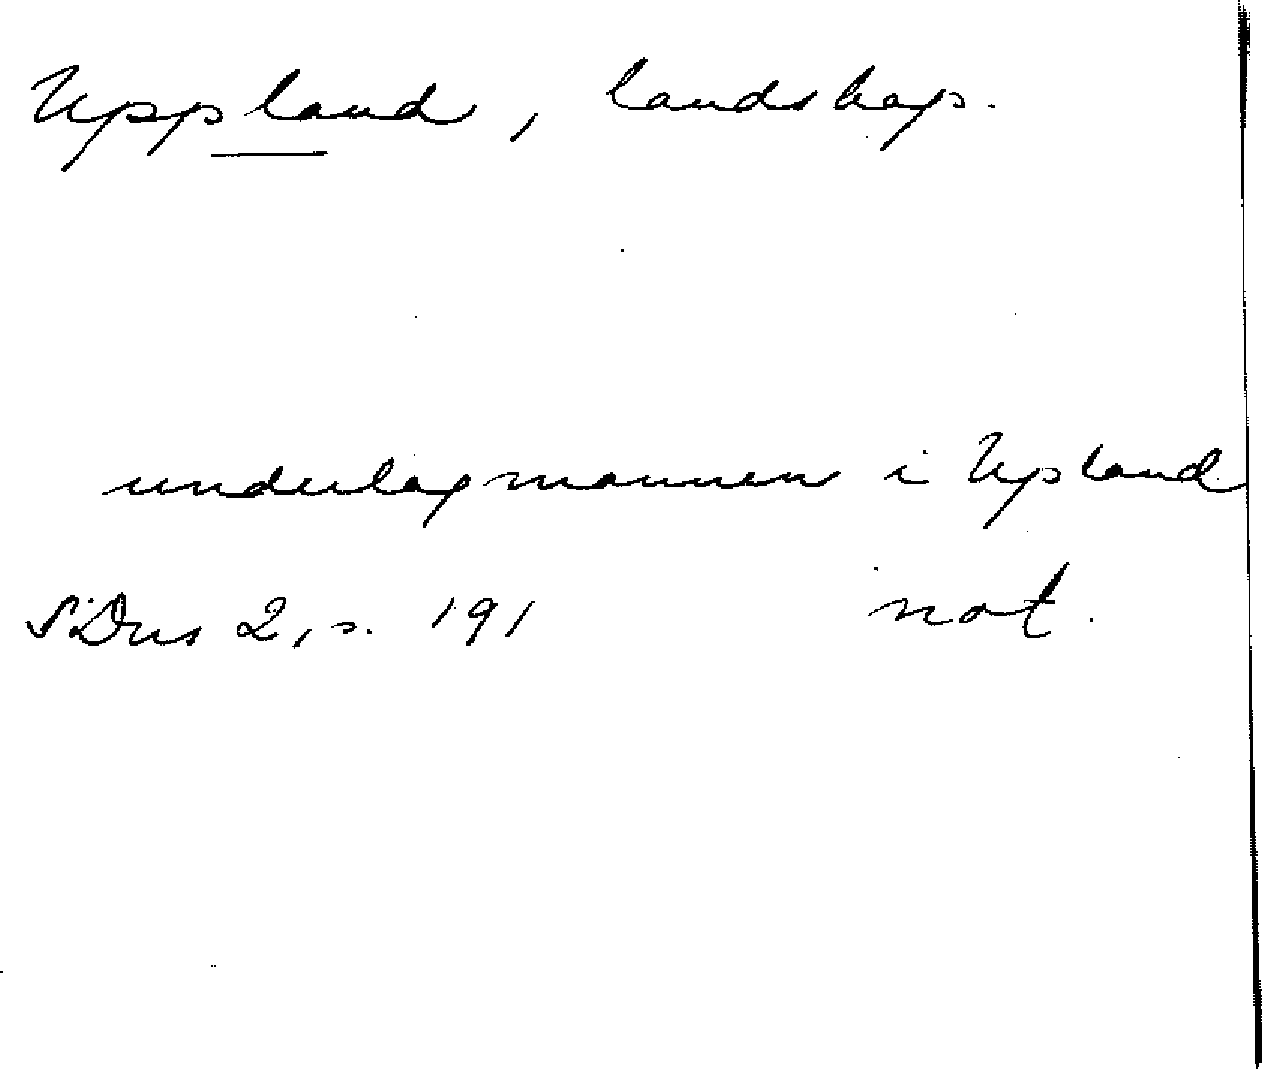 Uppland, landskap.
underlagmannen i Upland
SDns 2, s. 191 not.